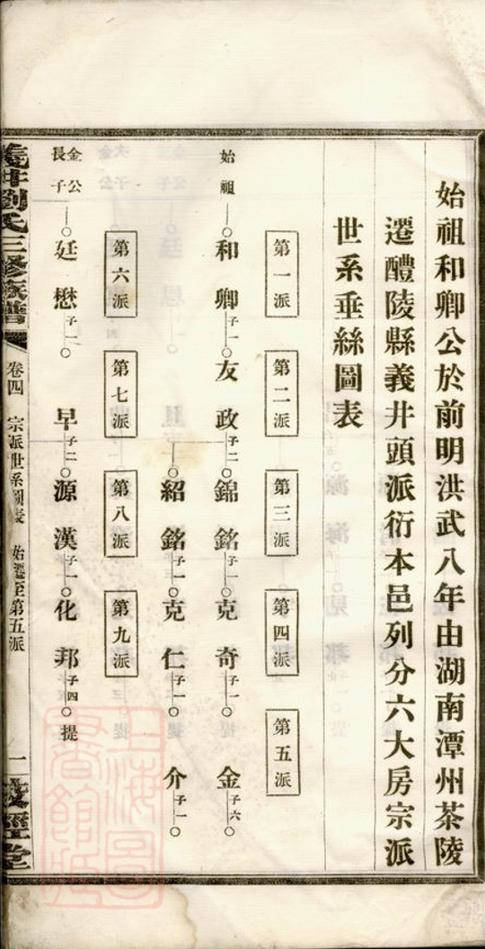 始祖和卿公於前明洪武八年由湖南潭州茶陵
遷醴陵縣義井頭派衍本邑列分六大房宗派
世系垂絲圖表
第一派 第二派 第三派 第四派 第五派
始祖 和卿 子一 友政 子二 錦銘 子一 克奇 子一 金 子六
紹銘 子一 克仁 子一 介 子一
第六派 第七派 第八派 第九派
金公長子 廷懋 子一 早 子二 源漢 子一 化邦 子四 提
義井劉氏三修族譜 卷四 宗派世系圖表 始遷至第五派 一
上海圖書館藏